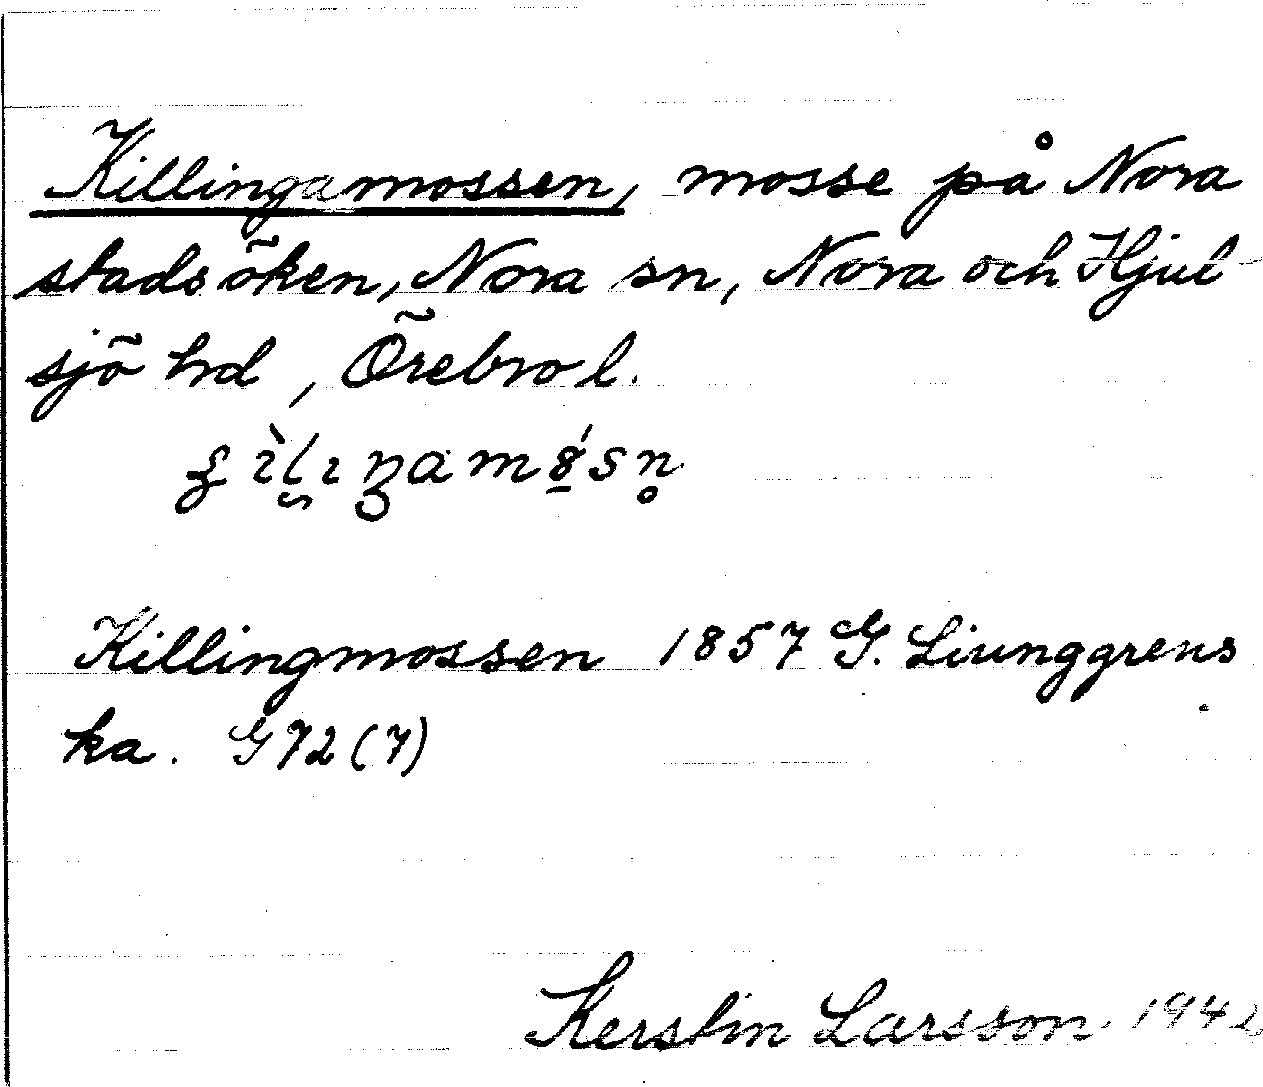 Killingamossen, mosse på Nora
stadsöken, Nora sn, Nora och Hjul-
sjö hd, Örebro l.
Killingmossen 1857 G. Liunggrens
ka. G 72 (7)
Kerstin Larsson. 1942